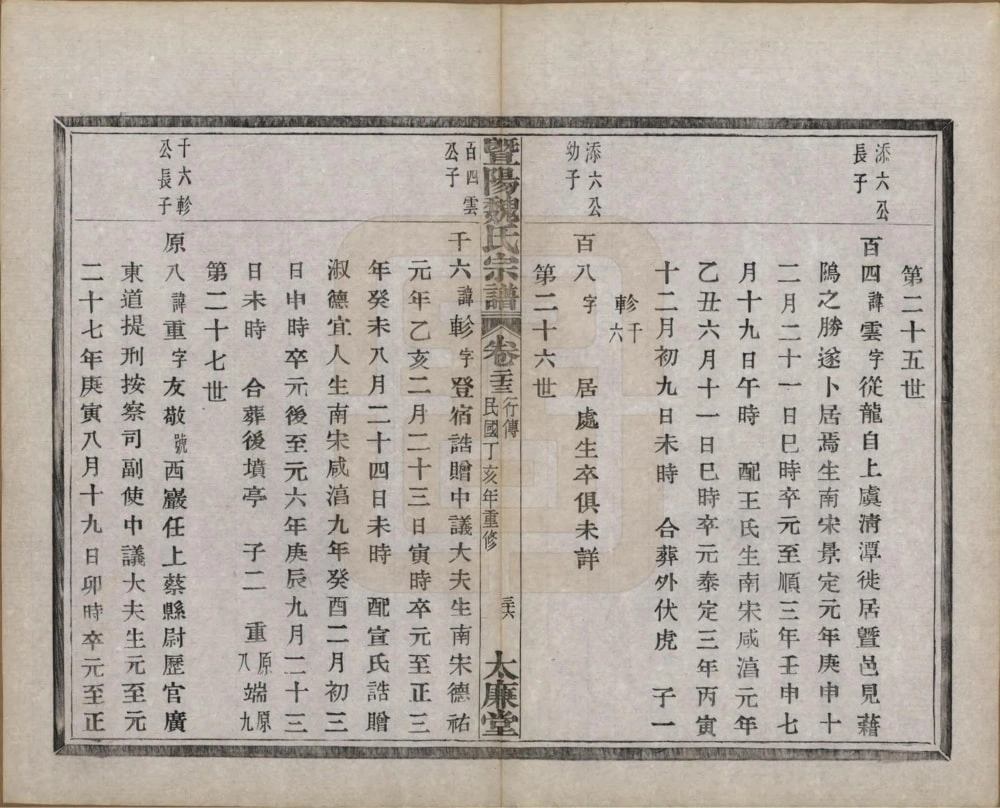 第二十五世
添六公
長子
百四諱雲字從龍自上虞清潭徙居暨邑見藉
鴻之勝遂卜居焉生南宋景定元年庚申十
二月二十一日巳時卒元至順三年壬申七
月十九日午時 配王氏生南宋咸湻元年
乙丑六月十一日巳時卒元泰定三年丙寅
十二月初九日未時 合葬外伏虎 子一
軫千
六
添六公
幼子
百八字 居處生卒俱未詳
第二十六世
暨陽魏氏宗譜 卷二十三 行傳 民國丁亥年重修 三六 太廉堂
百四雲
公子
千六諱軫字登宿誥贈中議大夫生南宋德祐
元年乙亥二月二十三日寅時卒元至正三
年癸未八月二十四日未時 配宣氏誥贈
淑德宜人生南宋咸湻九年癸酉二月初三
日申時卒元後至元六年庚辰九月二十三
日未時 合葬後墳亭 子二 重原八端原九
第二十七世
千六軫
公長子
原八諱重字友敬號西巖任上蔡縣尉歷官廣
東道提刑按察司副使中議大夫生元至元
二十七年庚寅八月十九日卯時卒元至正